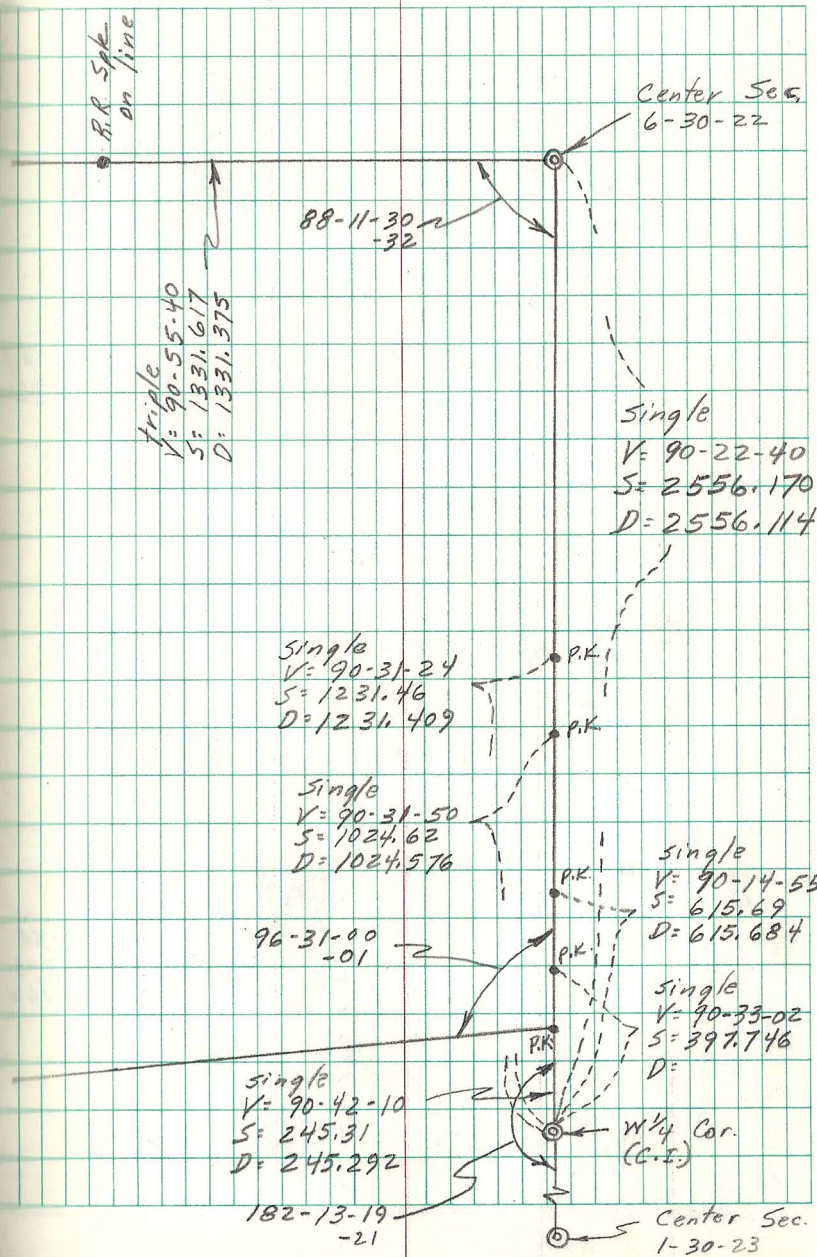 R.R. Spk
on line
Center Sec.
6-30-22
88-11-30
-32
triple
V= 90-55-40
S= 1331.617
D= 1331.375
Single
V= 90-22-40
S= 2556.170
D= 2556.114
Single
V= 90-31-24
S= 1231.46
D= 1231.409
P.K.
P.K.
Single
V= 90-31-50
S= 1024.62
D= 1024.576
P.K.
Single
V= 90-14-55
S= 615.69
D= 615.684
96-31-00
-01
P.K.
Single
V= 90-33-02
S= 397.746
D=
P.K.
Single
V= 90-42-10
S= 245.31
D= 245.292
W 1/4 Cor.
(C.I.)
182-13-19
-21
Center Sec.
1-30-23